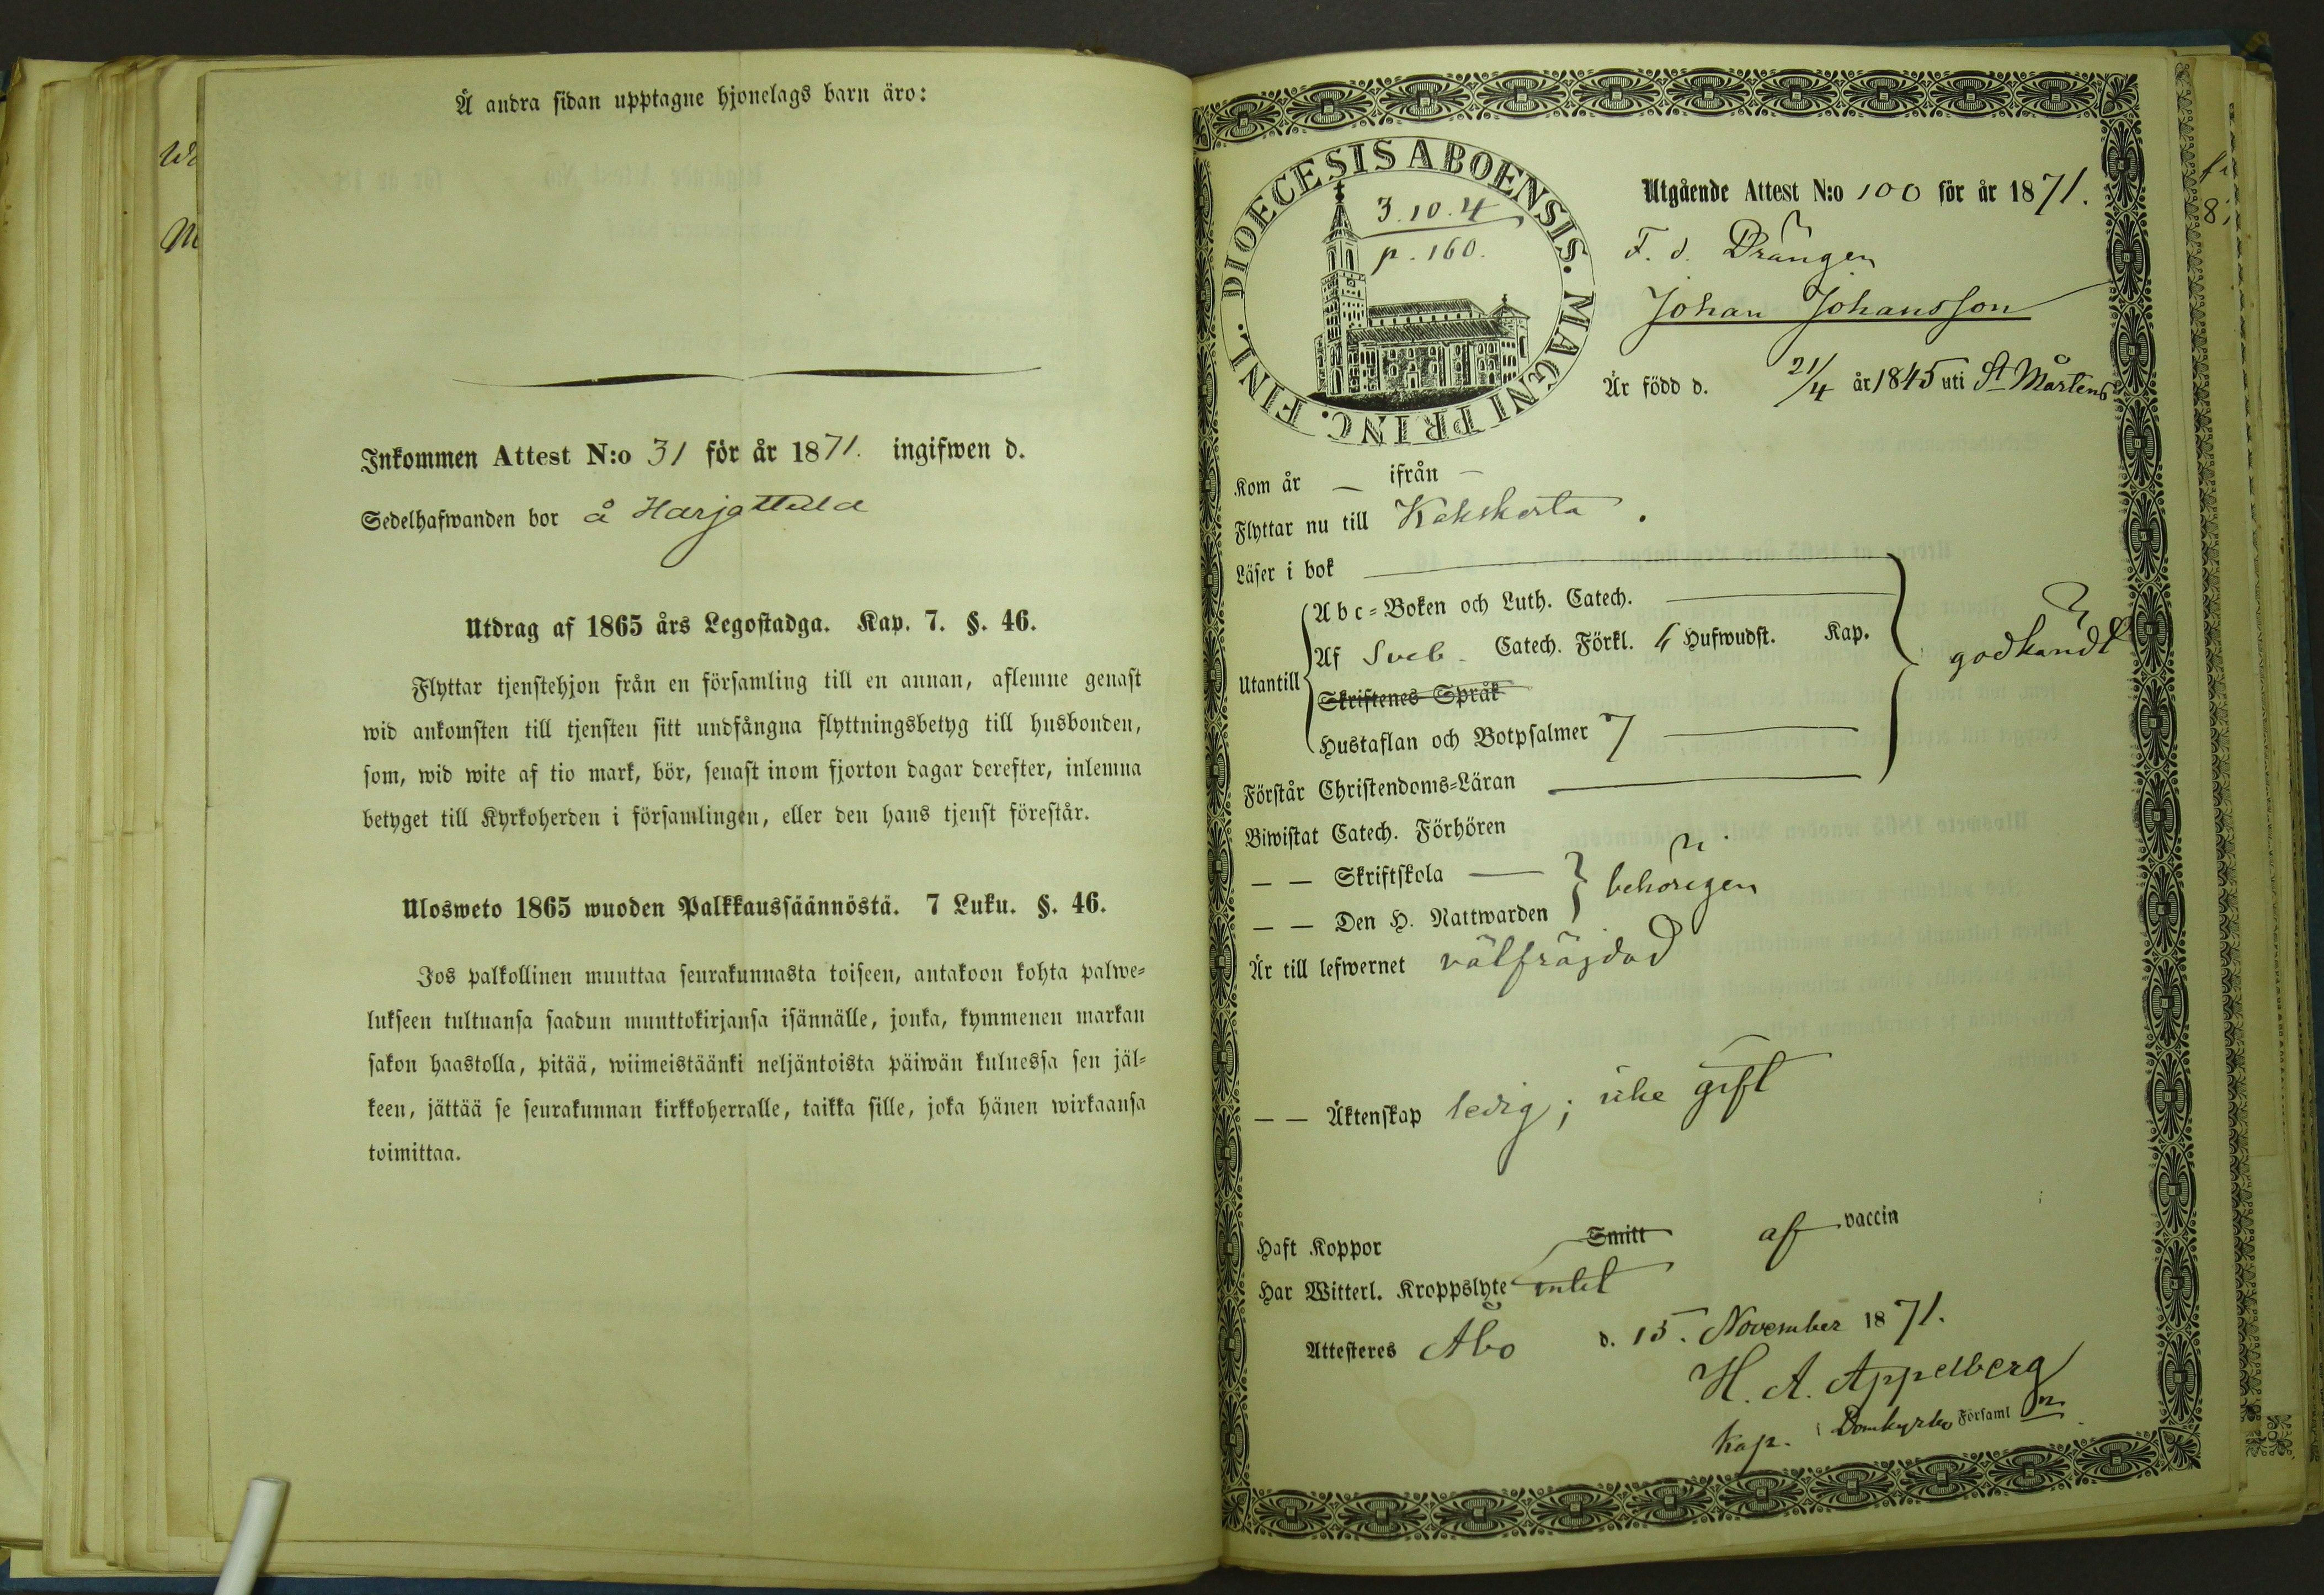 Å andra sidan upptagne hjonelags barn äro:
Inkommen Attest N:o 31 för år 1871. ingifwen d.
Sedelhafwanden bor å Harjattula
Utdrag af 1865 års Legostadga. Kap. 7. §. 46.
Flyttar tjenstehjon från en församling till en annan, aflemne genast
wid ankomsten till tjensten sitt undfångna flyttningsbetyg till husbonden,
som, wid wite af tio mark, bör, senast inom fjorton dagar derefter, inlemna
betyget till Kyrkoherden i församlingen, eller den hans tjenst förestår.
Ulosweto 1865 wuoden Palkkaussäännöstä. 7 Luku. §. 46.
Jos palkollinen muuttaa seurakunnasta toiseen, antakoon kohta palwe-
lukseen tultuansa saadun muuttokirjansa isännälle, jonka, kymmenen markan
sakon haastolla, pitää, wiimeistäänki neljäntoista päiwän kuluessa sen jäl-
keen, jättää se seurakunnan kirkkoherralle, taikka sille, joka hänen wirkaansa
toimittaa.
DIOECESIS ABOENSIS. MAGNI PRINC. FINL.
3.10.4
p. 160.
Utgående Attest N:o 100 för år 1871.
F. d. Drängen
Johan Johansson
Är född d. 21/4 år 1845 uti St Mårtens
Kom år — ifrån —
Flyttar nu till Kakskerta.
Läser i bok
Abc-Boken och Luth. Catech.
Utantill
Af Sveb. Catech. Förkl. Hufwudst. Kap.
godkändt
Skriftenes Språk
Hustaflan och Botpsalmer 7
Förstår Christendoms-Läran
Biwistat Catech. Förhören
— — Skriftskola
behörigen
— — Den H. Nattwarden
Är till lefwernet välfräjdad
— — Äktenskap ledig; icke gift
Haft Koppor Smitt af vaccin
Har Witterl. Kroppslyte intet
Attesteres Åbo d. 15. November 1871.
H. A. Appelberg
Kap. i Domkyrko Församl n